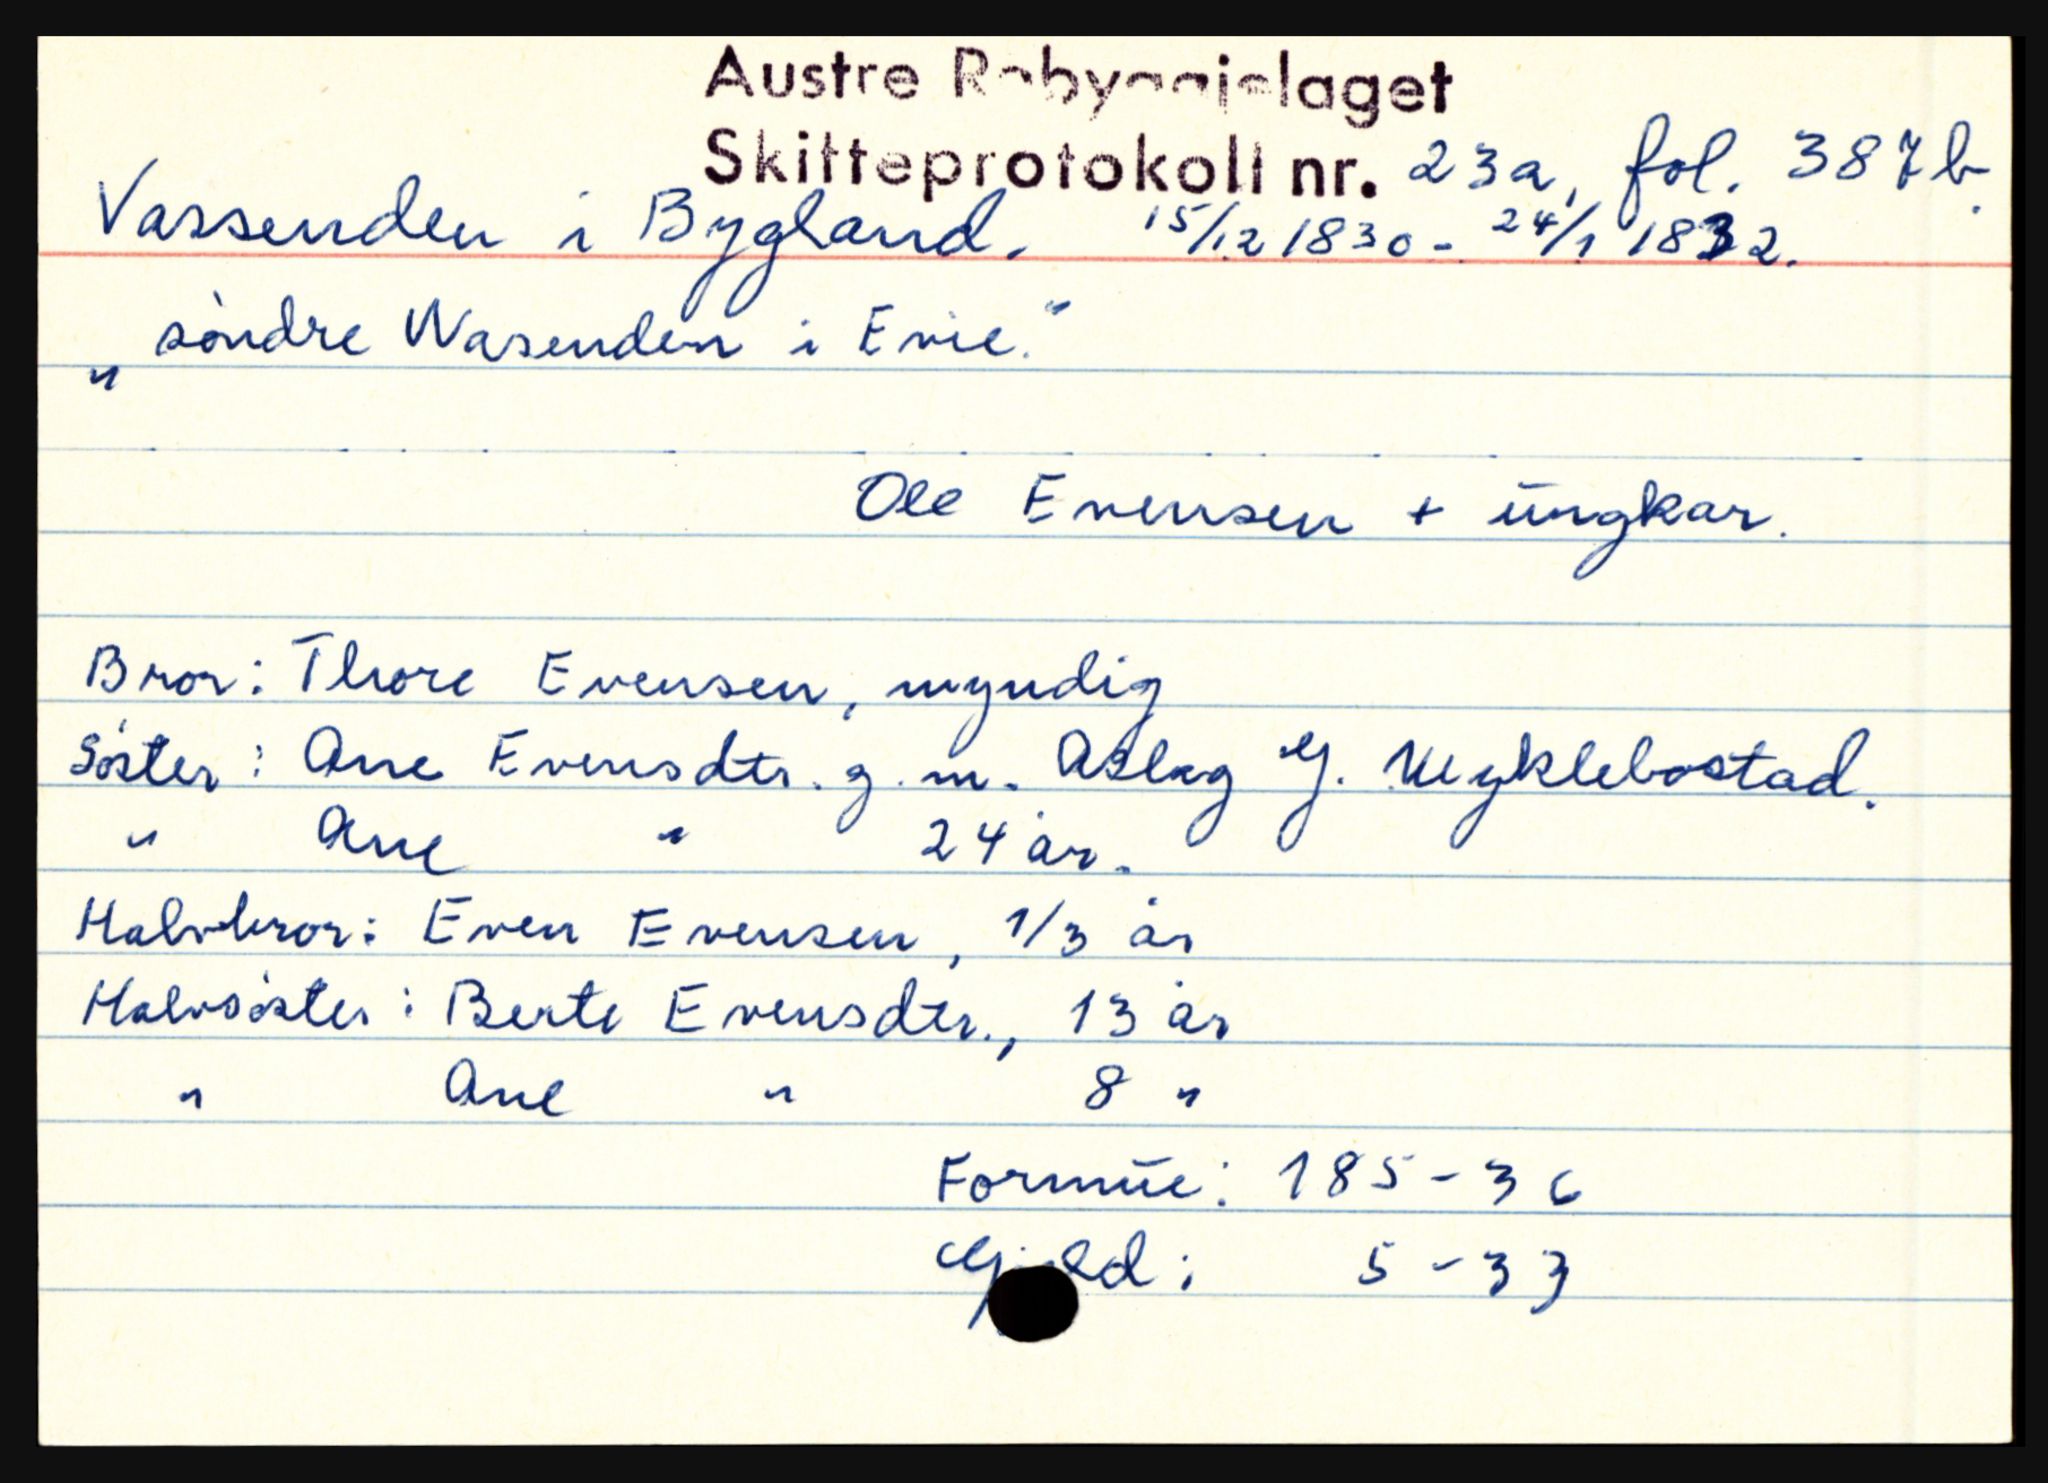 Austre Robyggjelaget
Skifteprotokoll nr. 23a, fol. 387b.
Vassenden i Bygland. 15/12 1830 - 24/1 1832.
„ söndre Wasenden i Evie."
Ole Evensen + ungkar.
Bror: Thore Evensen, myndig
Söster: Ane Evensdtr. g. m. Aslag G. Myklebostad.
" Ane " 24 år.
Halvbror: Even Evensen, 1/3 år
Halvsöster: Berte Evensdtr., 13 år
" Ane " 8 "
Formue: 185 - 36
Gjeld: 5 - 33